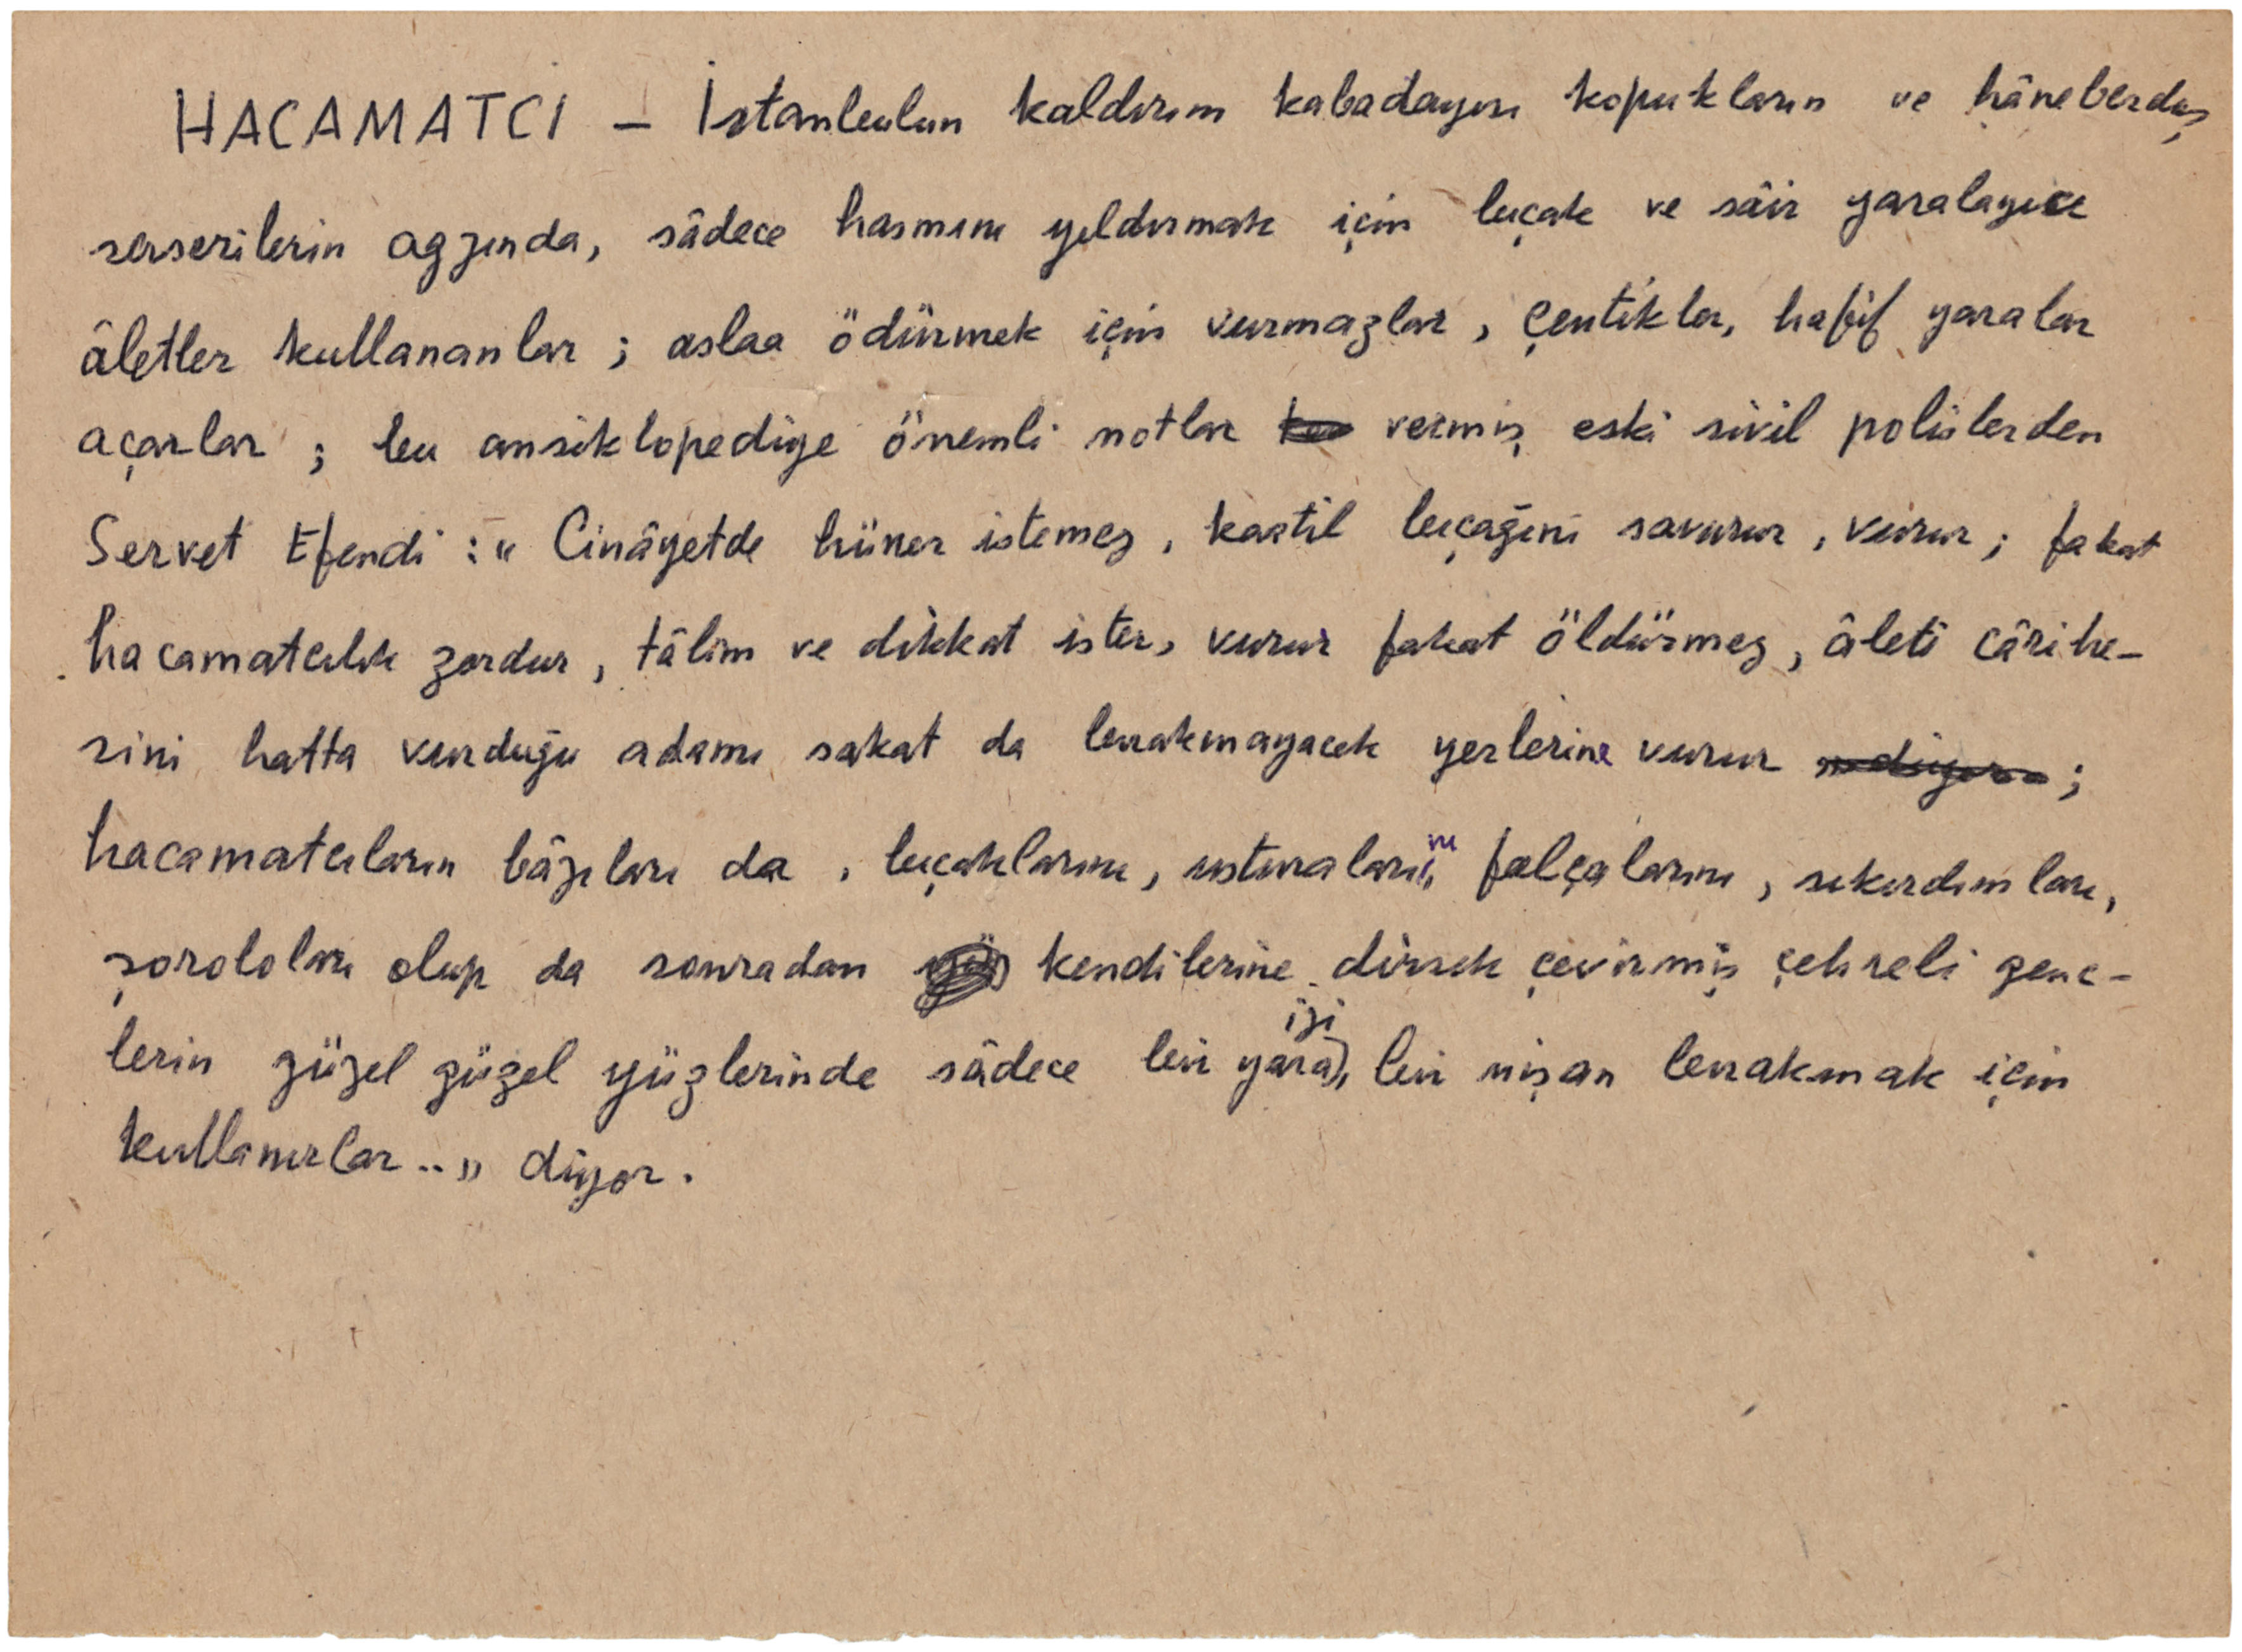 HACAMATCI – İstanbulun kaldırım kabadayısı kopukların ve hâneberduş
serserilerin agzında, sâdece hasmını yıldırmak için bıçak ve sâir yaralayıcı
âletler kullananlar ; aslaa ödürmek için vurmazlar, çentikler, hafif yaralar
açarlar ; bu ansiklopediye önemli notlar vermiş eski sivil polislerden
Servet Efendi : « Cinâyetde hüner istemez, kaatil bıçağını savurur, vurur ; fakat
hacamatcılık zordur, tâlim ve dikkat ister, vurur fakat öldürmez, âleti cârihe-
sini hatta vurduğu adamı sakat da bırakmayacak yerlerine vurur ;
hacamatcıların bâzıları da, bıçaklarını, usturalarını, falçalarını, sıkırdımları,
şoroloları olup da sonradan kendilerine dirsek çevirmiş çehreli genc-
lerin güzel güzel yüzlerinde sâdece bir yara izi, bir nişan bırakmak için
kullanırlar.. » diyor.